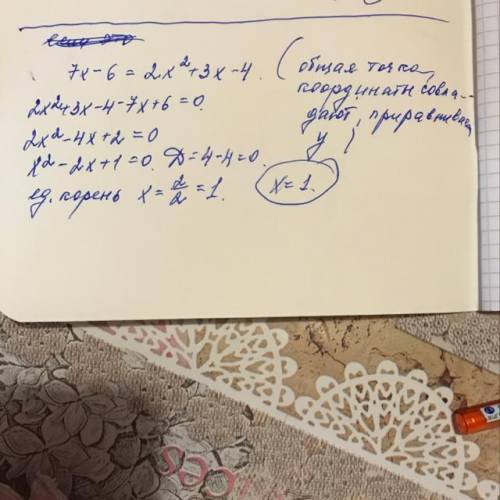 7x-6 = 2x²+3x-4. (общая точка,
координаты совпа-
дают, приравниваем
y)
2x²+3x-4-7x+6=0.
2x²-4x+2=0
x²-2x+1=0. D=4-4=0.
ед. корень x= 2/2 =1.
x=1.